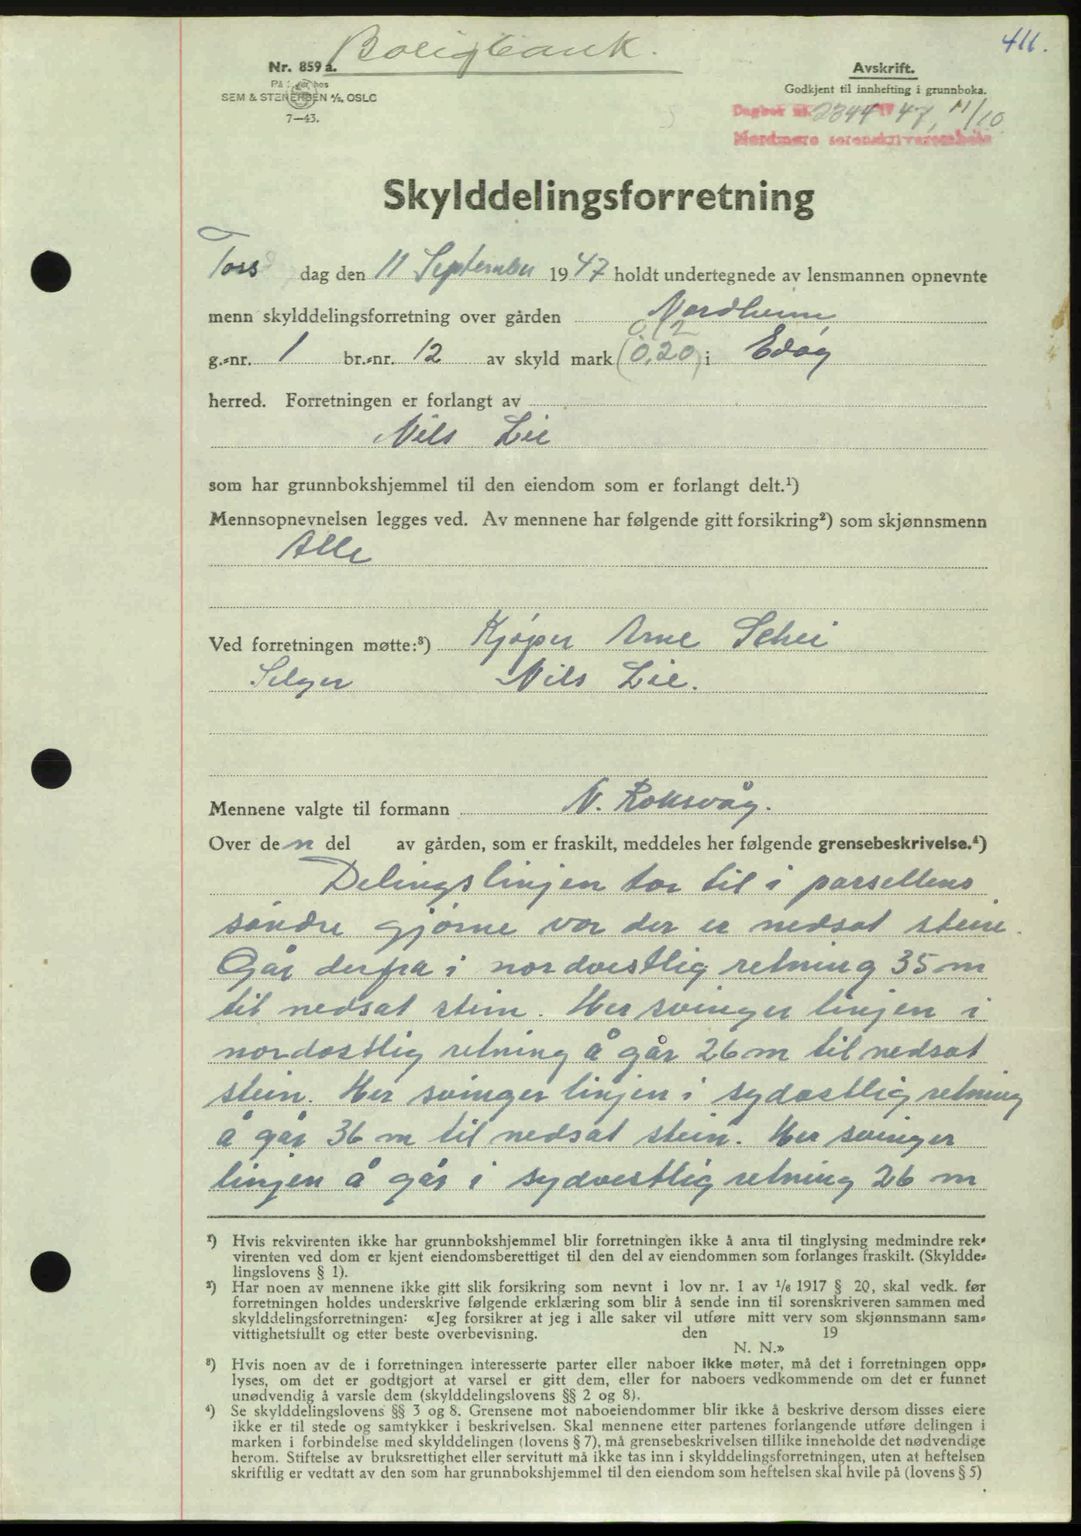 Boligbank.
411.
Nr. 859 a.
På lager hos
SEM & STENERSEN A/S, OSLO
7—43.
Avskrift.
Godkjent til innhefting i grunnboka.
Dagbok nr. 2344 1947, 11/10
Nordmøre sorenskriverembete
Skylddelingsforretning
Torsdag den 11 September 1947 holdt undertegnede av lensmannen opnevnte
menn skylddelingsforretning over gården Nordheim
0,12
g.-nr. 1 br.-nr. 12 av skyld mark (0,20) i Edøy
herred. Forretningen er forlangt av
Nils Lie
som har grunnbokshjemmel til den eiendom som er forlangt delt.¹)
Mennsopnevnelsen legges ved. Av mennene har følgende gitt forsikring²) som skjønnsmenn
Alle
Ved forretningen møtte:³) Kjøper Arne Schei
Selger Nils Lie.
Mennene valgte til formann N. Roksvåg.
Over den del av gården, som er fraskilt, meddeles her følgende grensebeskrivelse.⁴)
Delingslinjen tar til i parsellens
søndre gjørne vor der er nedsat stein.
Går derfra i nordvestlig retning 35 m
til nedsat stein. Her svinger linjen i
nordøstlig retning å går 26 m til nedsat
stein. Her svinger linjen i sydøstlig retning
å går 36 m til nedsat stein. Her svinger
linjen å går i sydvestlig retning 26 m
¹) Hvis rekvirenten ikke har grunnbokshjemmel blir forretningen ikke å anta til tinglysing medmindre rek-
virenten ved dom er kjent eiendomsberettiget til den del av eiendommen som forlanges fraskilt. (Skyldde-
lingslovens § 1).
²) Har noen av mennene ikke gitt slik forsikring som nevnt i lov nr. 1 av 1/6 1917 § 20, skal vedk. før
forretningen holdes underskrive følgende erklæring som blir å sende inn til sorenskriveren sammen med
skylddelingsforretningen: «Jeg forsikrer at jeg i alle saker vil utføre mitt verv som skjønnsmann sam-
vittighetsfullt og etter beste overbevisning. den 19
N. N.»
³) Hvis noen av de i forretningen interesserte parter eller naboer ikke møter, må det i forretningen opp-
lyses, om det er godtgjort at varsel er gitt dem, eller for naboers vedkommende om det er funnet
unødvendig å varsle dem (skylddelingslovens §§ 2 og 8).
⁴) Se skylddelingslovens §§ 3 og 8. Grensene mot naboeiendommer blir ikke å beskrive dersom disses eiere
ikke er til stede og samtykker i beskrivelsen. Skal mennene etter partenes forlangende utføre delingen i
marken i forbindelse med skylddelingen (lovens § 7), må grensebeskrivelsen tillike inneholde det nødvendige
herom. Stiftelse av bruksrettighet eller servitutt må ikke tas inn i skylddelingsforretningen, uten at heftelsen
skriftlig er vedtatt av den som har grunnbokshjemmel til den eiendom som heftelsen skal hvile på (lovens § 5)